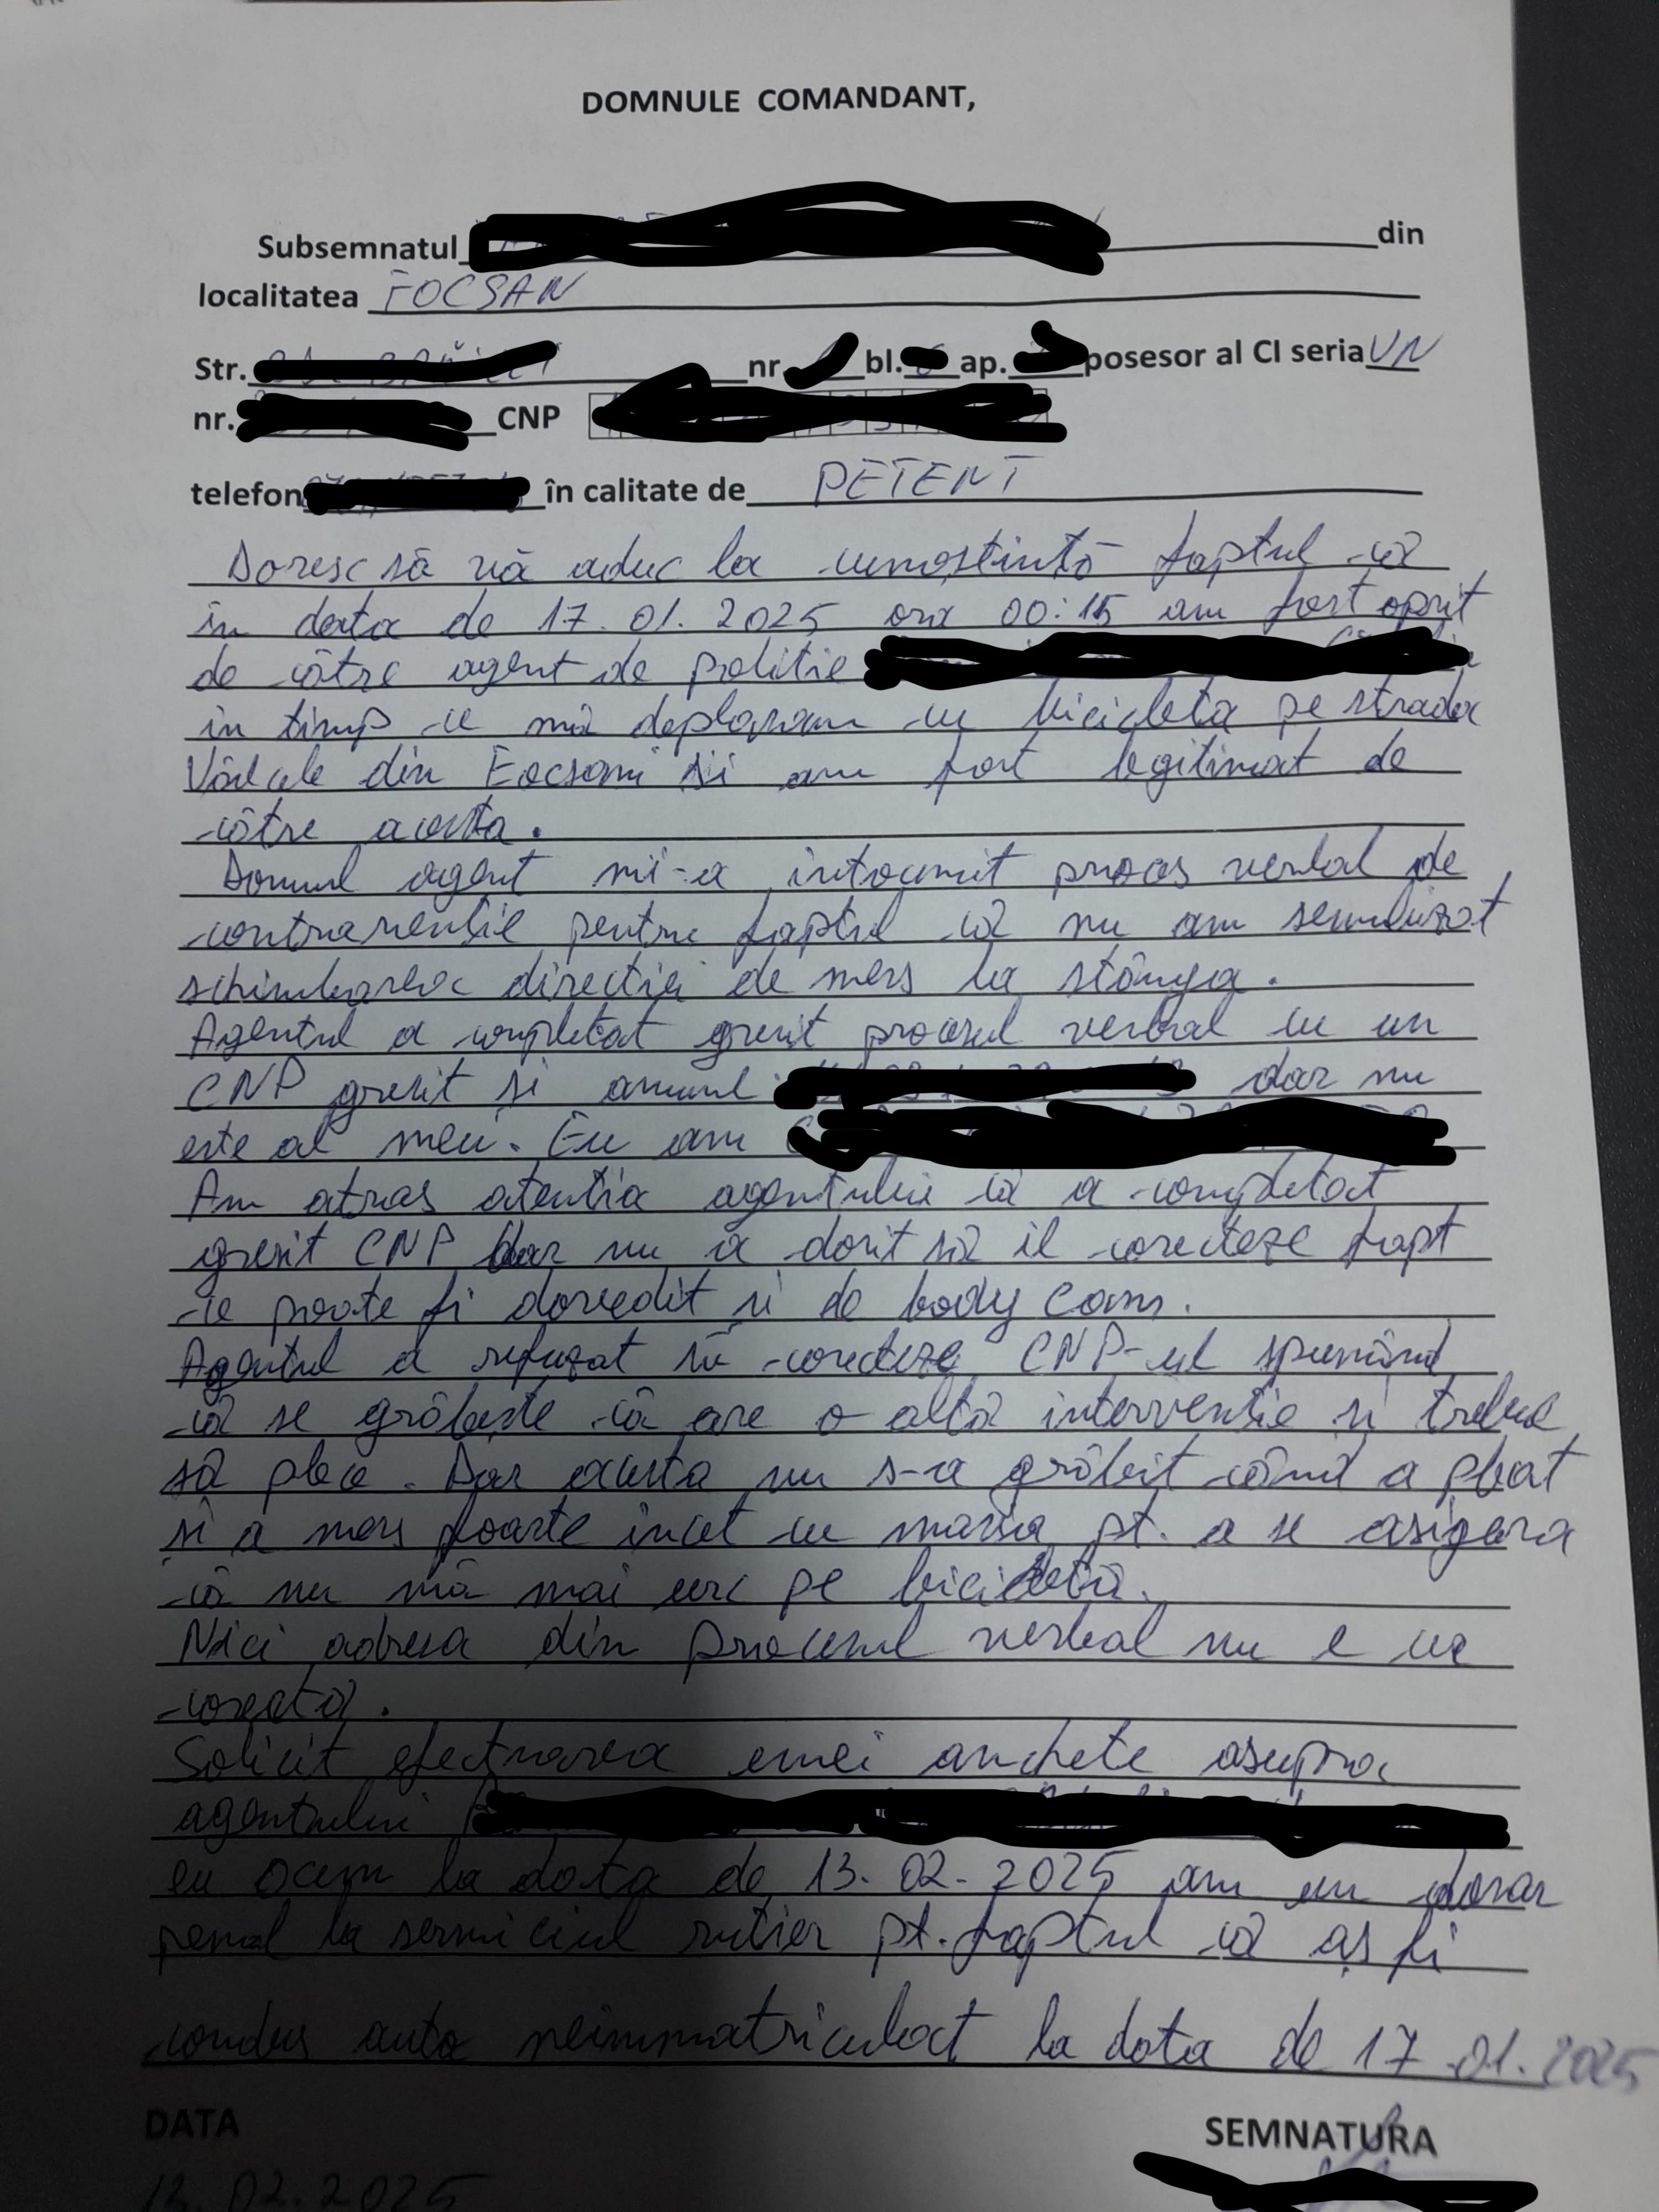 DOMNULE COMANDANT,
Subsemnatul din
localitatea FOCSAN
Str. nr. bl. ap. posesor al CI seria VN
nr. CNP
telefon în calitate de PETENT
Doresc să vă aduc la cunoștintă faptul că
în data de 17.01.2025 ora 00:15 am fost oprit
de către agent de politie
in timp ce mă deplasam cu bicicleta pe strada
Vâlcele din Focsani si am fost legitimat de
către acesta.
Domnul agent mi-a intocmit proces verbal de
contraventie pentru faptul că nu am semnalizat
schimbarea directiei de mers la stânga.
Agentul a completat gresit procesul verbal cu un
CNP gresit si anume: dar nu
este al meu. Eu am
Am atras atentia agentului că a completat
gresit CNP dar nu a dorit să il corecteze fapt
ce poate fi dovedit si de body cam.
Agentul a refuzat să corecteze CNP-ul spunând
că se grăbeste că are o altă interventie si trebuie
să plece. Dar acesta nu s-a grăbit când a plecat
si a mers foarte incet cu masina pt. a se asigura
că nu mă mai urc pe bicicletă.
Nici adresa din procesul verbal nu e cea
corectă.
Solicit efectuarea unei anchete asupra
agentului
eu acum la data de 13.02.2025 am un dosar
penal la serviciul rutier pt. faptul că aș fi
condus auto neinmatriculat la data de 17.01.2025
DATA SEMNATURA
13.02.2025